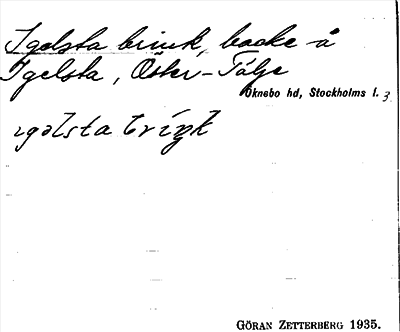 Igelsta brink, backe å
Igelsta, Öster-Tälje
Oknebo hd, Stockholms l. 3
ıgəlsta briŋk
GÖRAN ZETTERBERG 1935.